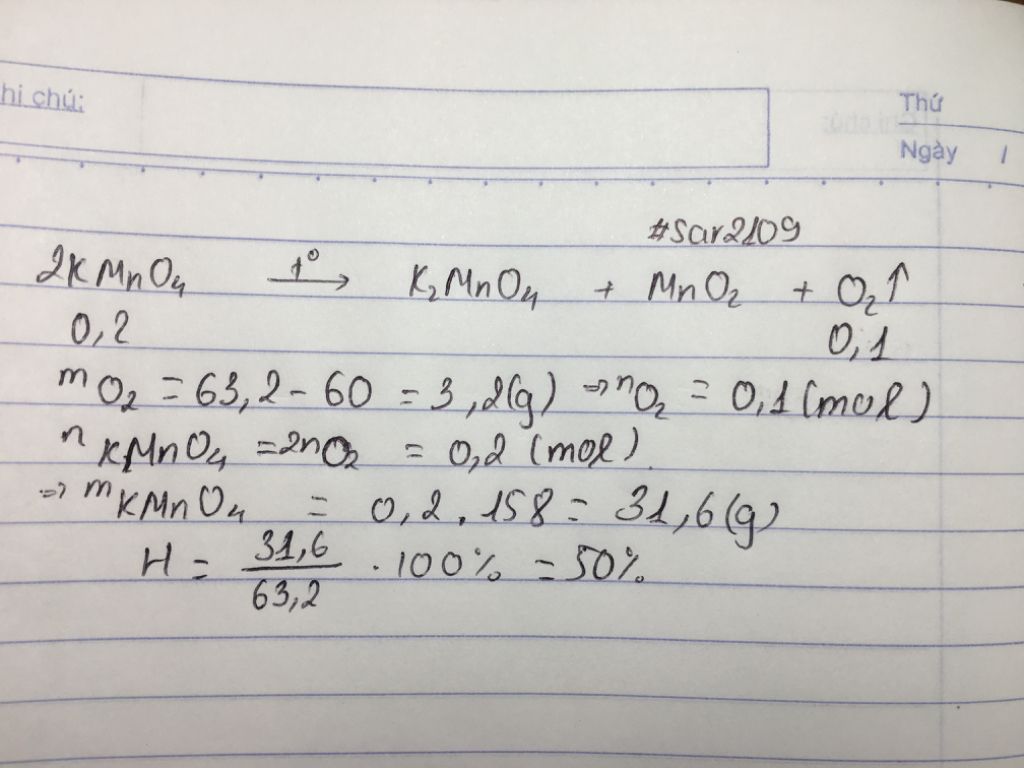 hi chú:
Thứ
Ngày /
#Sar2109
2KMnO₄ —t°→ K₂MnO₄ + MnO₂ + O₂↑
0,2 0,1
mO₂ = 63,2 - 60 = 3,2(g) => nO₂ = 0,1 (mol)
nKMnO₄ = 2nO₂ = 0,2 (mol).
=> mKMnO₄ = 0,2 . 158 = 31,6 (g)
H = 31,6/63,2 . 100% = 50%